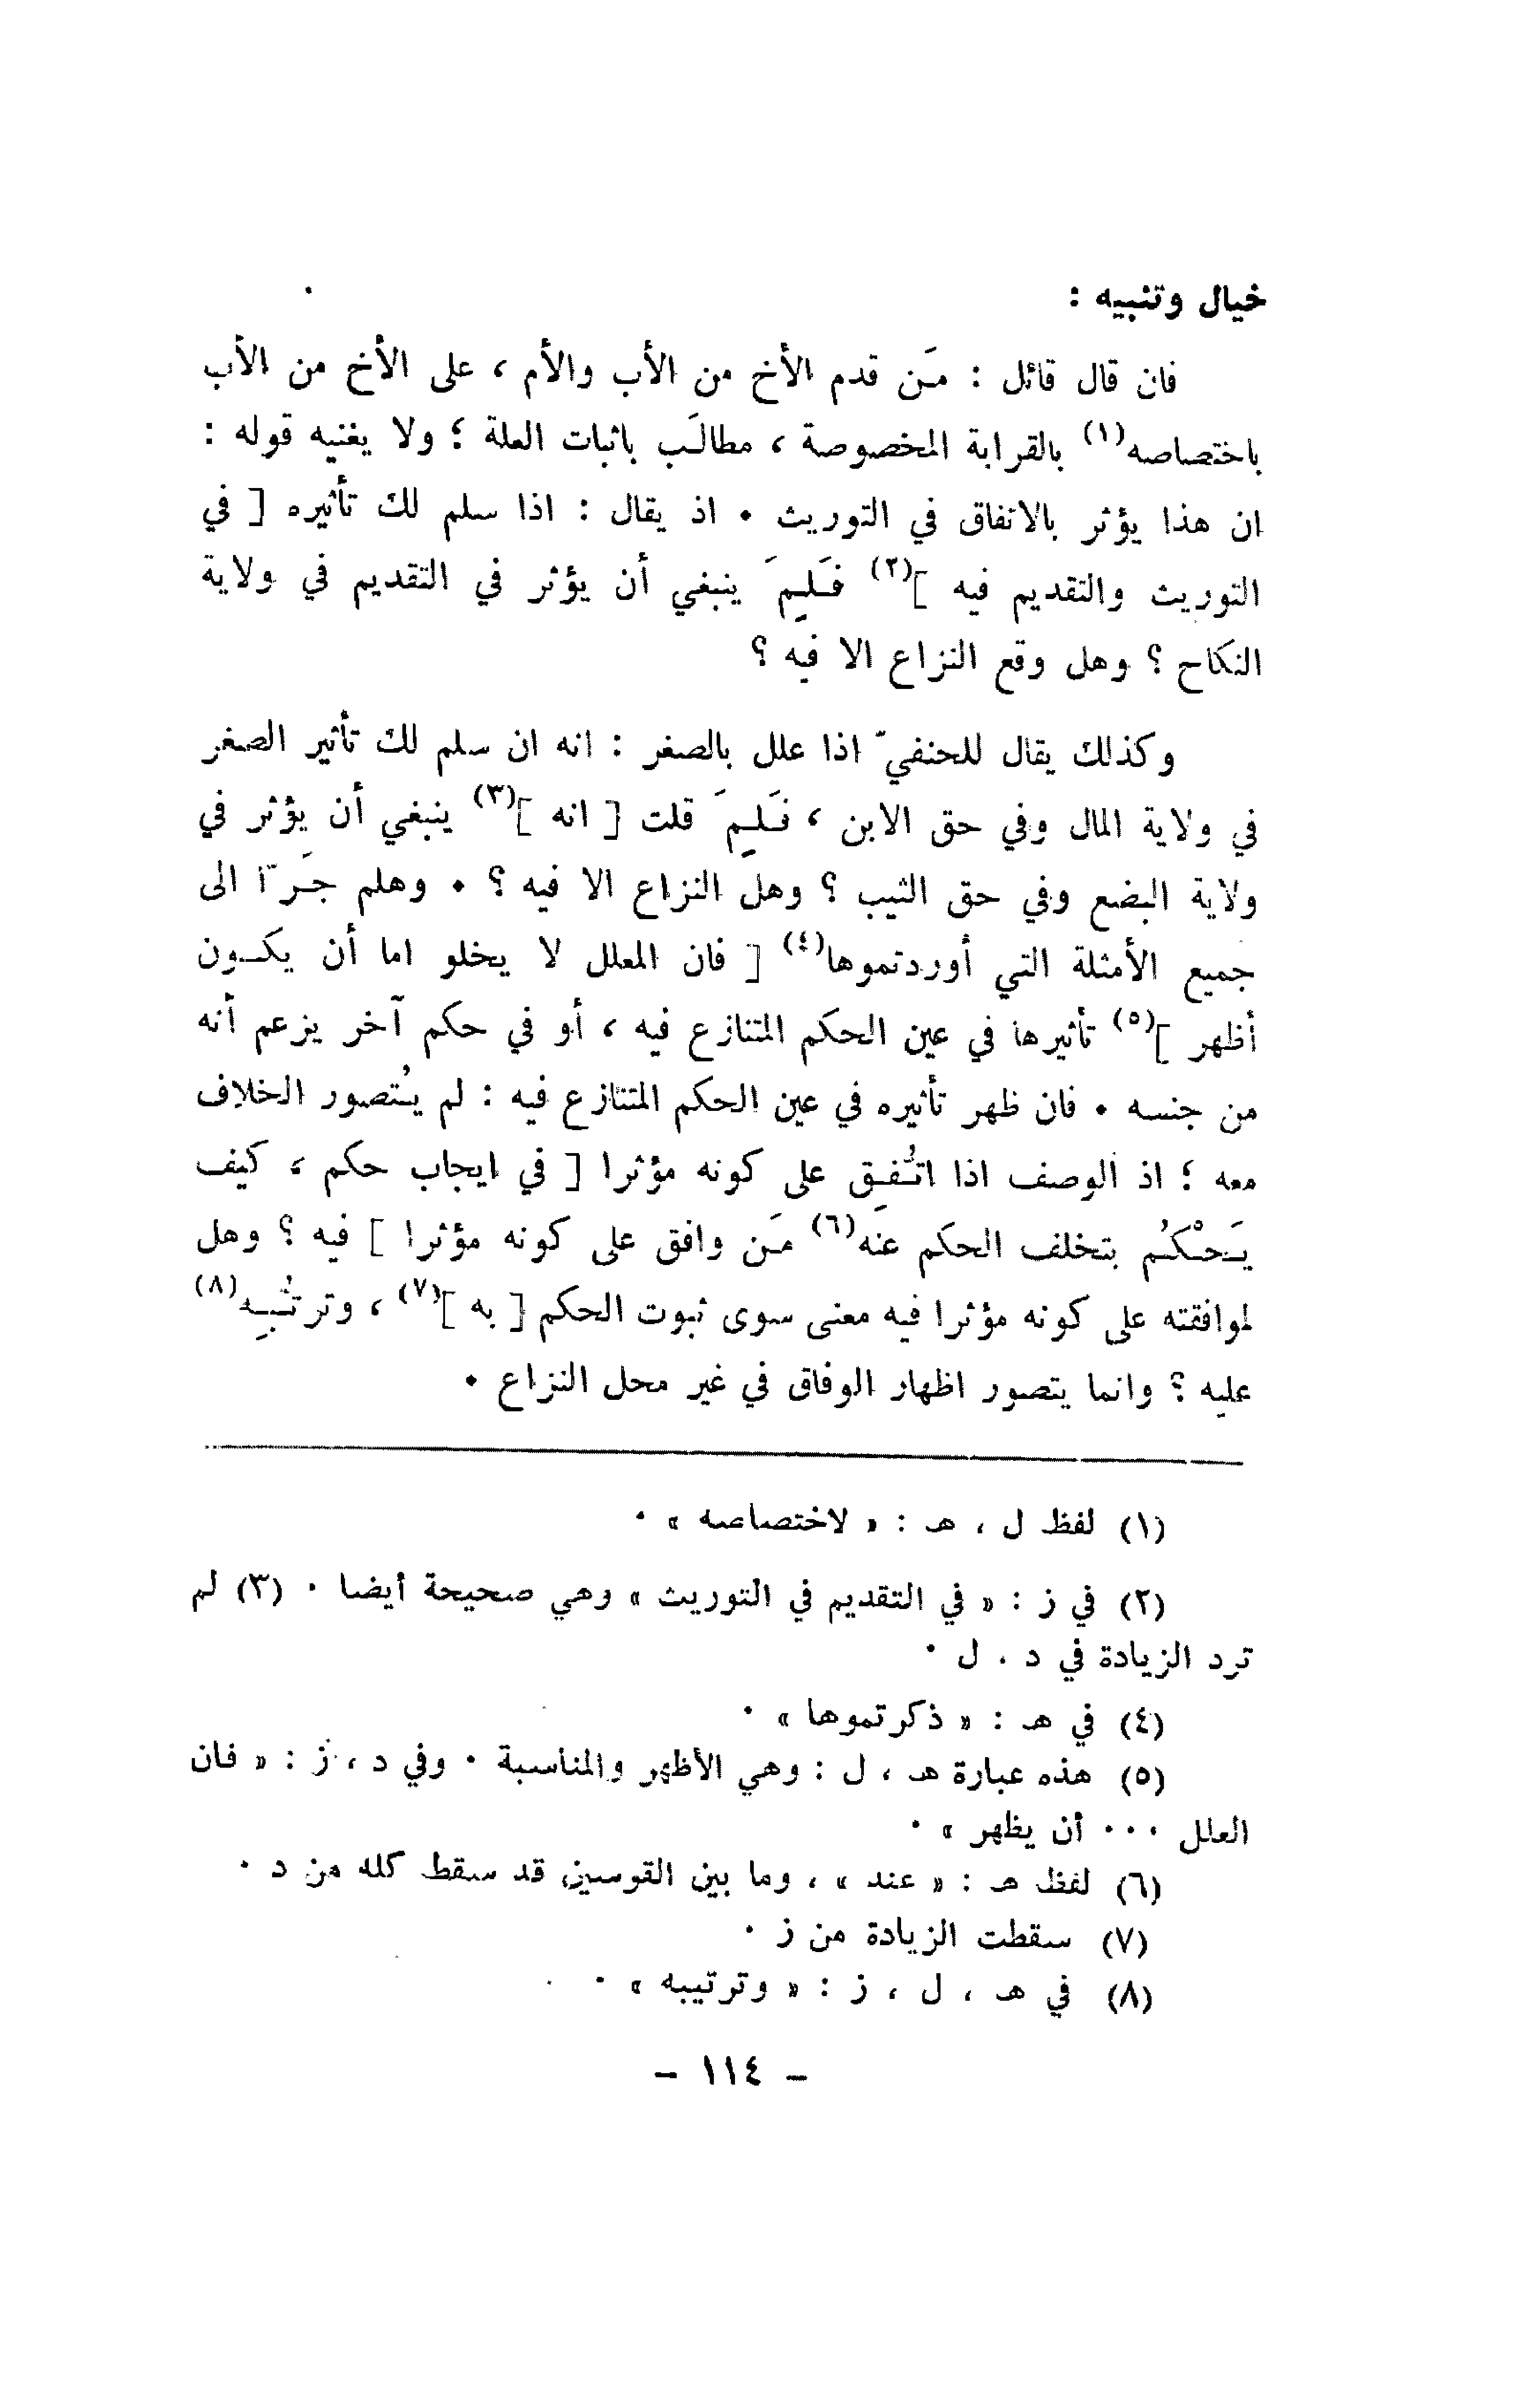 خيال وتنبيه :
فان قال قائل : مَن قدم الأخ من الأب والأم ، على الأخ من الأب
باختصاصه(١) بالقرابة المخصوصة ، مطالَب باثبات العلة ؛ ولا يغنيه قوله :
ان هذا يؤثر بالاتفاق في التوريث . اذ يقال : اذا سلم لك تأثيره [ في
التوريث والتقديم فيه ](٢) فَلِمَ ينبغي أن يؤثر في التقديم في ولاية
النكاح ؟ وهل وقع النزاع الا فيه ؟
وكذلك يقال للحنفيّ اذا علل بالصغر : انه ان سلم لك تأثير الصغر
في ولاية المال وفي حق الابن ، فَلِمَ قلت [ انه ](٣) ينبغي أن يؤثر في
ولاية البضع وفي حق الثيب ؟ وهل النزاع الا فيه ؟ . وهلم جَرّا الى
جميع الأمثلة التي أوردتموها(٤) [ فان المعلل لا يخلو اما أن يكون
أظهر ](٥) تأثيرها في عين الحكم المتنازع فيه ، أو في حكم آخر يزعم أنه
من جنسه . فان ظهر تأثيره في عين الحكم المتنازع فيه : لم يُتصور الخلاف
معه ؛ اذ الوصف اذا اتُّفِق على كونه مؤثرا [ في ايجاب حكم ، كيف
يَحْكُم بتخلف الحكم عنه(٦) مَن وافق على كونه مؤثرا ] فيه ؟ وهل
لموافقته على كونه مؤثرا فيه معنى سوى ثبوت الحكم [ به ](٧) ، وترتُّبِه(٨)
عليه ؟ وانما يتصور اظهار الوفاق في غير محل النزاع .
(١) لفظ ل ، هـ : « لاختصاصه » .
(٢) في ز : « في التقديم في التوريث » وهي صحيحة أيضا . (٣) لم
ترد الزيادة في د ، ل .
(٤) في هـ : « ذكرتموها » .
(٥) هذه عبارة هـ ، ل : وهي الأظهر والمناسبة . وفي د ، ز : « فان
العلل ... أن يظهر » .
(٦) لفظ هـ : « عند » ، وما بين القوسين قد سقط كله من د .
(٧) سقطت الزيادة من ز .
(٨) في هـ ، ل ، ز : « وترتيبه » .
- ١١٤ -